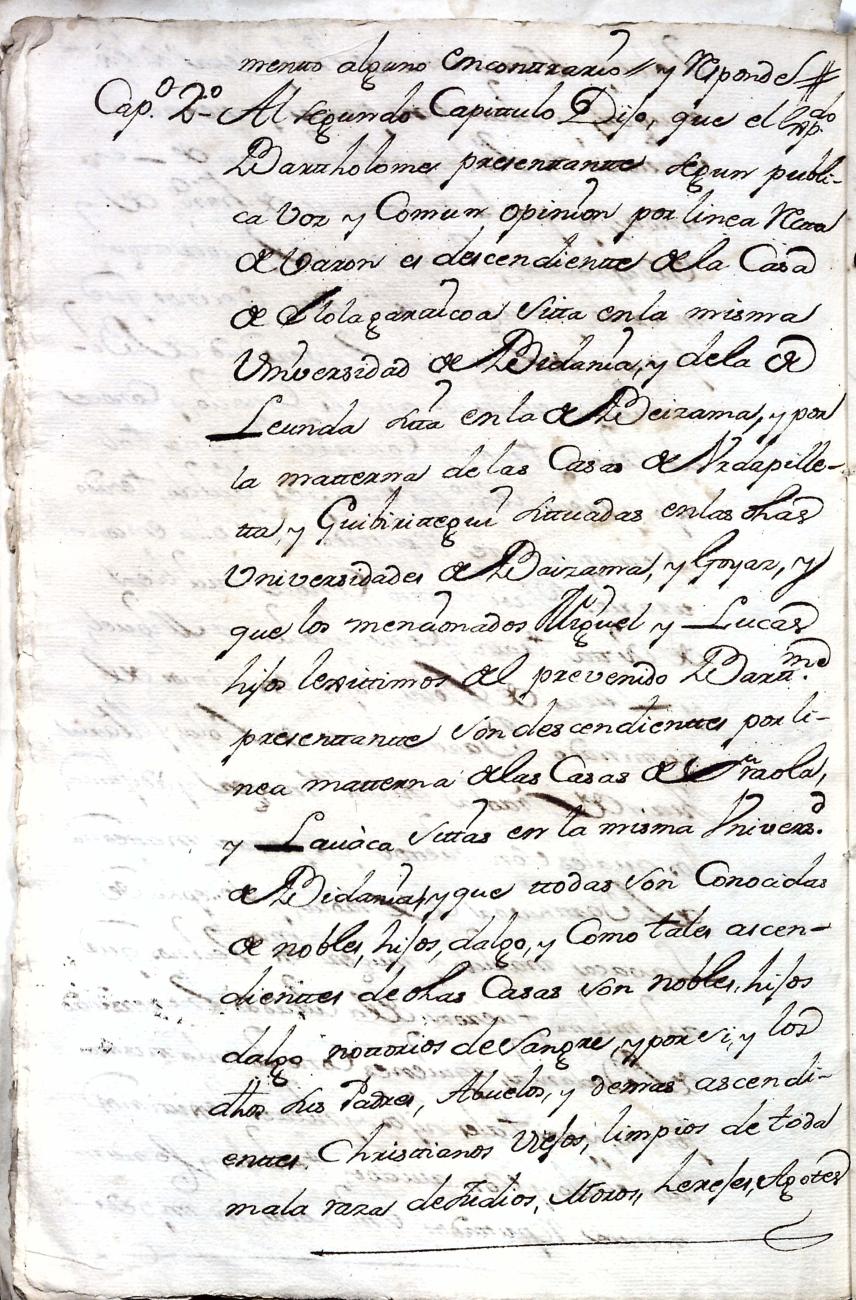 mento alguno encontrario // y responde #
Cap.o 2.o Al segundo Capittulo Dijo, que el
Barttholome presenttantte segun publi-
ca Voz y Comun opinion por linea Recta
de Varon es descendientte de la Casa
de Olola garaicoa sitta en la misma
Vniversidad de Bidania, y dela de
Leunda sitta en la de Beizama, y por
la matterna de las Casas de Vrdapille-
tta, y Guibirittegui sittuadas en las dhas
Vniversidades de Baizama, y Goyaz, y
que los mencionados Miguel y Lucas
hijos lexittimos del prevenido Bartt.me
presenttantte son descendienttes por li-
nea matterna delas Casas de
y Lauàca sittas en la misma Vnivers.d
de Bidania, y que ttodas son Conocidas
de nobles, hijos, dalgo, y Como tales ascen-
dienttes de dhas Casas son nobles, hijos
dalgo nottorios de sangre, y por si, y los
dhos sus Padres, Abuelos, y demas ascendi-
enttes, Christtianos Viejos, limpios de toda
mala raza de Judios, Moros, herejes, Agotes